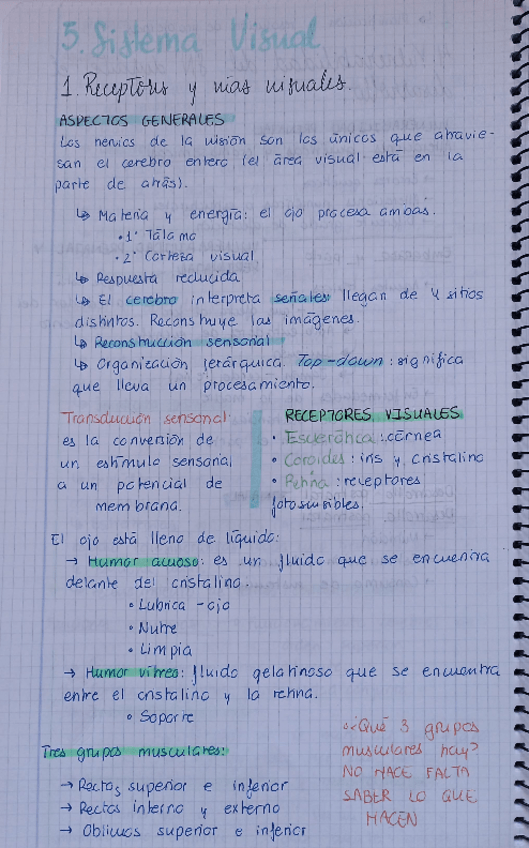 3. Sistema Visual
1. Receptores y vías visuales.
ASPECTOS GENERALES
Los nervios de la visión son los únicos que atravie-
san el cerebro entero (el área visual está en la
parte de atrás).
↳ Materia y energía: el ojo procesa ambas.
• 1º Tálamo
• 2º Corteza visual
↳ Respuesta reducida
↳ El cerebro interpreta señales llegan de 4 sitios
distintos. Reconstruye las imágenes.
↳ Reconstrucción sensorial
↳ Organización jerárquica. Top-down: significa
que lleva un procesamiento.
Transducción sensorial:
es la conversión de
un estímulo sensorial
a un potencial de
membrana.
RECEPTORES VISUALES
• Esclerótica: córnea
• Coroides: iris y cristalino
• Retina: receptores
fotosensibles.
El ojo está lleno de líquido:
→ Humor acuoso: es un fluido que se encuentra
delante del cristalino.
• Lubrica - ojo
• Nutre
• Limpia
→ Humor vítreo: fluido gelatinoso que se encuentra
entre el cristalino y la retina.
• Soporte
Tres grupos musculares:
→ Rectos superior e inferior
→ Rectos interno y externo
→ Oblicuos superior e inferior
¿Qué 3 grupos
musculares hay?
NO HACE FALTA
SABER LO QUE
HACEN